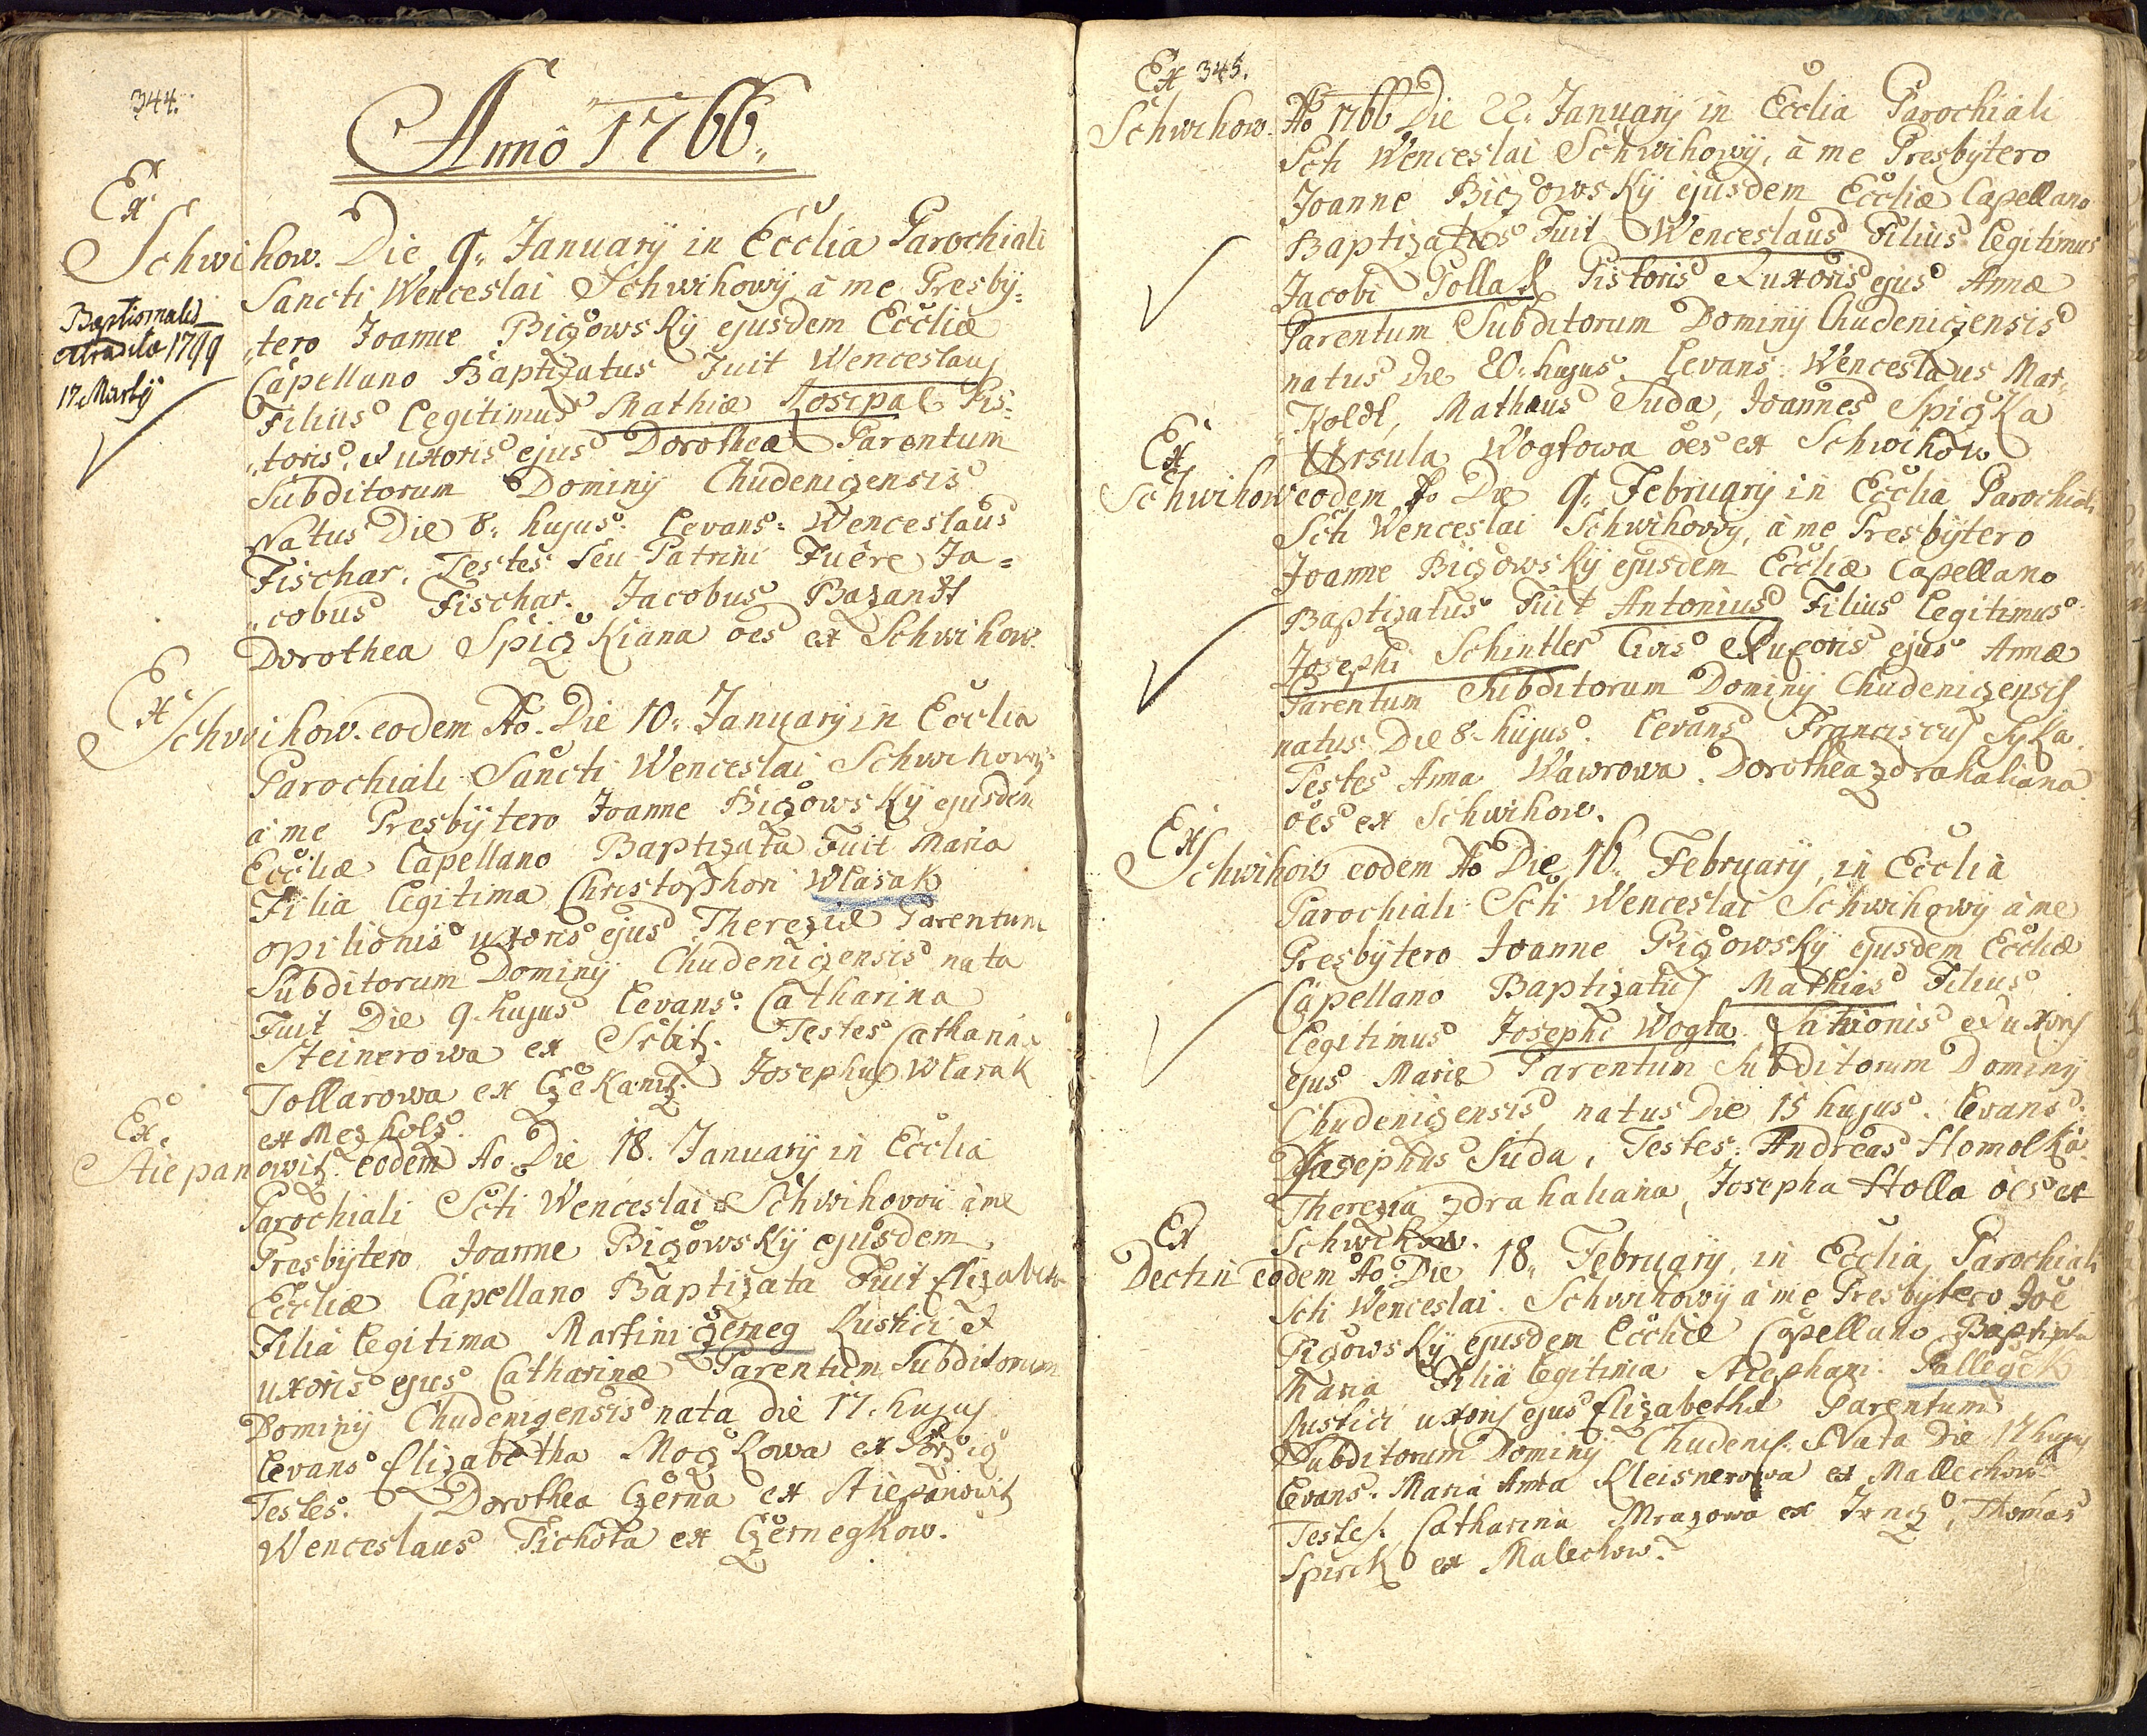 344.
Annô 1766.
Ex
Schwihow. Die 9. January in Ecclia Parochiali
Sancti Wenceslai Schwihowÿ â me Presbÿ=
Baptismalis
extradita 1799
17. Martÿ
tero Joanne Biczowskÿ ejusdem Eccliæ
Capellano Baptizatus Fuit Wenceslaus
Filius legitimus Mathiæ Kosepal Pis=
toris, et uxoris ejus Dorotheæ Parentum
Subditorum Dominÿ Chudeniczensis
Natus Die 8. hujus. Levans. Wenceslaus
Fischar. Testes seu Patrini Fuêre Ja=
cobus Fischar. Jacobus Bazandt
Dorothea Spiczkiana oes ex Schwihow.
Ex
Schwihow. eodem Ao. Die 10. January in Ecclia
Parochiali Sancti Wenceslai Schwihowÿ
â me Presbÿtero Joanne Biczowskÿ ejusdem
Eccliæ Capellano Baptizata Fuit Maria
Filia legitima Christophori Wlasak
opilionis uxoris ejus Thereziæ Parentum
Subditorum Dominÿ Chudeniczensis nata
Fuit Die 9. hujus Levans. Catharina
Steinerowa ex Srbitz. Testes Catharina
Tollarowa ex Czekanitz. Josephus Wlasak
ex Mezholz.
Ex.
Stiepanowitz. eodem Ao. Die 18. January in Ecclia
Parochiali Scti Wenceslai Schwihovii â me
Presbÿtero Joanne Biczowskÿ ejusdem
Eccliæ Capellano Baptizata Fuit Elizabetha
Filia legitima Martini Czerneg Rustici et
uxoris ejus Catharinæ Parentum Subditorum
Dominÿ Chudenigensis nata die 17. hujus
Levans Elizabetha Moczkowa ex
Testes. Dorothea Czerna ex Stiepanowitz
Wenceslaus Tichota ex Czernegkow.
Ex 345.
Schwihow. Ao 1766 Die 22. January in Ecclia Parochiali
Scti Wenceslai Schwihowÿ, â me Presbÿtero
Joanne Biczowskÿ ejusdem Eccliæ Capellano
Baptizatus Fuit Wenceslaus Filius legitimus
Jacobi Pollak Pistoris et uxoris ejus Annæ
Parentum Subditorum Dominÿ Chudeniczensis
natus Die 20. hujus. Levans Wenceslaus Mar=
Koldt, Mathæus Suda, Joannes Spiczka
Ursula Wogtowa oes ex Schwihow
Ex
Schwihow eodem Ao Die 9. February in Ecclia Parochiali
Scti Wenceslai Schwihowÿ, â me Presbÿtero
Joanne Biczowskÿ ejusdem Eccliæ Capellano
Baptizatus Fuit Antonius Filius legitimus
Josephi Schintler Civis et uxoris ejus Annæ
Parentum Subditorum Dominÿ Chudeniczensis
natus Die 8. hujus. Levans Franciscus Sÿka.
Testes Anna Wawrowa. Dorothea zdrahaliana
oes ex Schwihow.
Ex
Schwihow eodem Ao Die 16. February, in Ecclia
Parochiali Scti Wenceslai Schwihowÿ â me
Presbÿtero Joanne Biczowskÿ ejusdem Eccliæ
Capellano Baptizatus Mathias Filius
legitimus Josephi Wogta et uxoris
ejus Mariæ Parentum Subditorum Dominÿ
Chudeniczensis, natus Die 15 hujus. Levans.
Josephus Suda, Testes. Andreas Homolka.
Therezia zdrahaliana, Josepha Holla oes ex
Schwihow.
Ex
Dectin eodem Ao. Die 18. February, in Ecclia Parochiali
Scti Wenceslai Schwihowÿ â me Presbÿtero Joe
Biczowskÿ ejusdem Eccliæ Capellano Baptizata
Maria Filia legitima Stephani Palleczek
Rustici uxoris ejus Elizabethæ Parentum
Subditorum Dominÿ Chudenis. Nata Die 17 hujus
Levans. Maria Anna Kleisnerowa ex Mallechow
Testes. Catharina Mrazowa ex Thomas
Spirek ex Malechow.